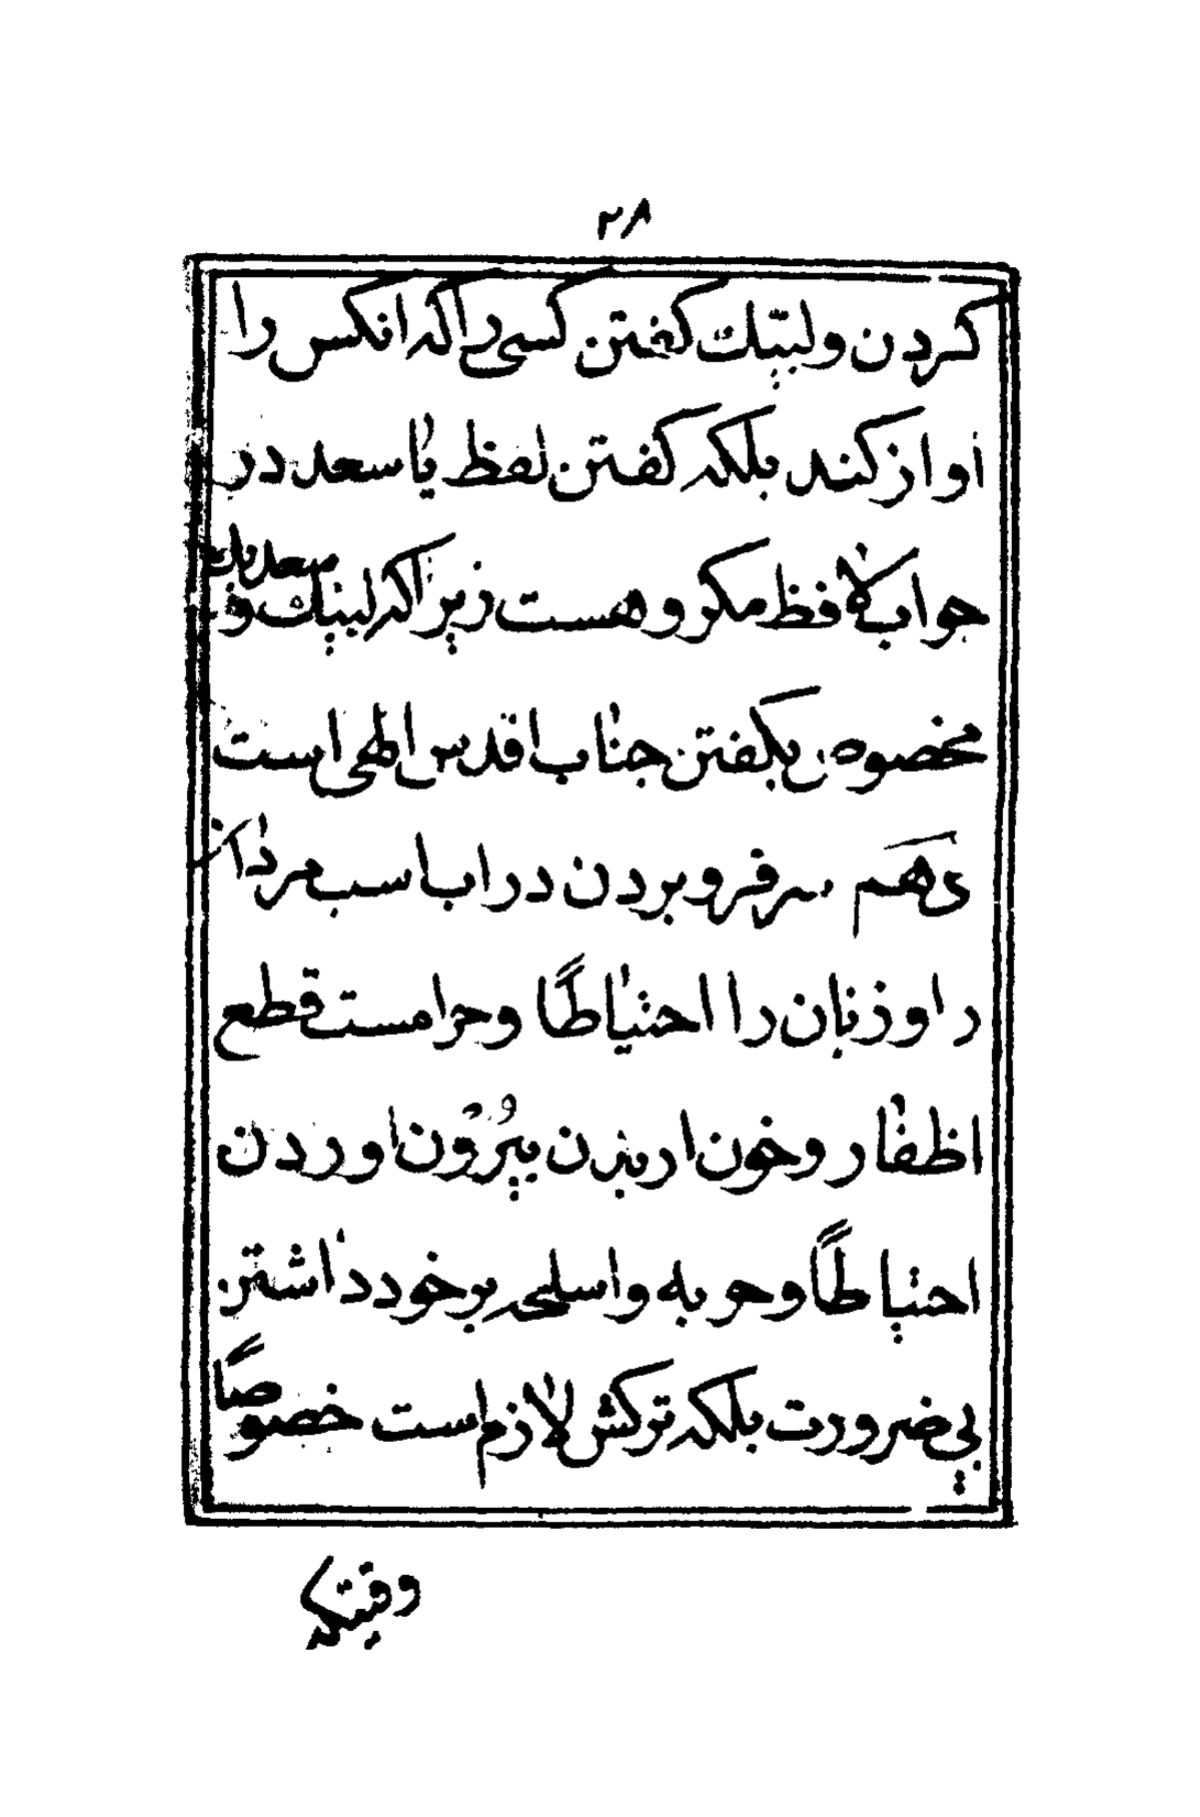 ۲۸
کردن و لبیک کفتن کسی را که انکس را
اواز کند بلکه کفتن لفظ یا سعد در
جواب کافظ مکروهست زیرا که لبیک و سعدیک
مخصوص بکفتن جناب اقدس الهی است
دهم سر فرو بردن در اب اسب مردان
را و زنان را احتیاطًا و حرامست قطع
اظفار و خون از بدن بیرون اوردن
احتیاطًا و حربه و اسلحه بر خود داشتن
بی ضرورت بلکه ترکش لازم است خصوصًا
وقتیکه